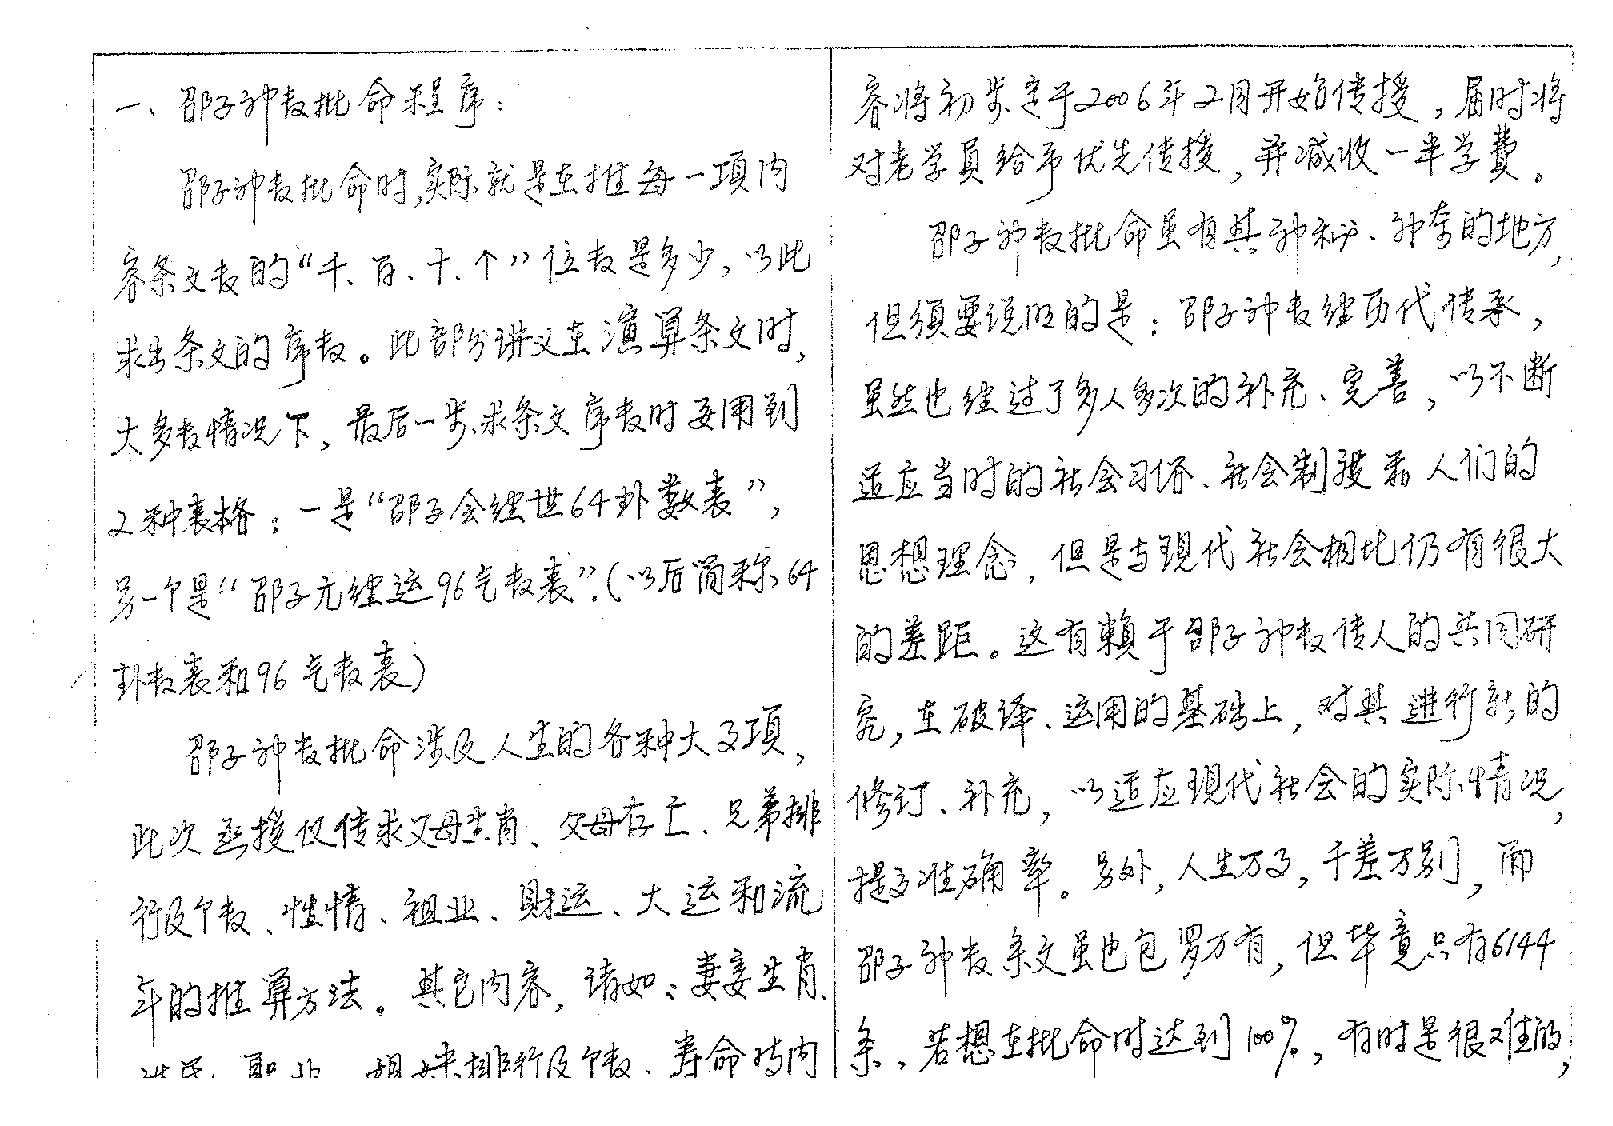 一、邵子神数批命程序：
邵子神数批命时,实际就是在推每一项内
容条文数的“千、百、十、个”位数是多少，以此
求出条文的序数。此部分讲义在演算条文时,
大多数情况下，最后一步求条文序数时要用到
2种表格：一是“邵子会经世64卦数表”,
另一个是“邵子元经运96气数表”.(以后简称64
卦数表和96气数表)
邵子神数批命涉及人生的各种大事项，
此次函授仅传求父母生肖、父母存亡、兄弟排
行及个数、性情、祖业、财运、大运和流
年的推算方法。其它内容，诸如：妻妾生肖、
职业 姐妹排行及个数、寿命时内
容将初步定于2006年2月开始传授，届时将
对老学员给予优先传授，并减收一半学费。
邵子神数批命虽有其神秘、神奇的地方,
但须要说明的是：邵子神数经历代传承，
虽然也经过了多人多次的补充、完善，以不断
适应当时的社会习俗、社会制度和人们的
思想理念，但是与现代社会相比仍有很大
的差距。这有賴于邵子神数传人的共同研
究，在破译、运用的基础上，对其进行新的
修订、补充，以适应现代社会的实际情况，
提高准确率。另外，人生万事，千差万别，而
邵子神数条文虽也包罗万有，但毕竟只有6144
条、若想在批命时达到100%，有时是很难的，